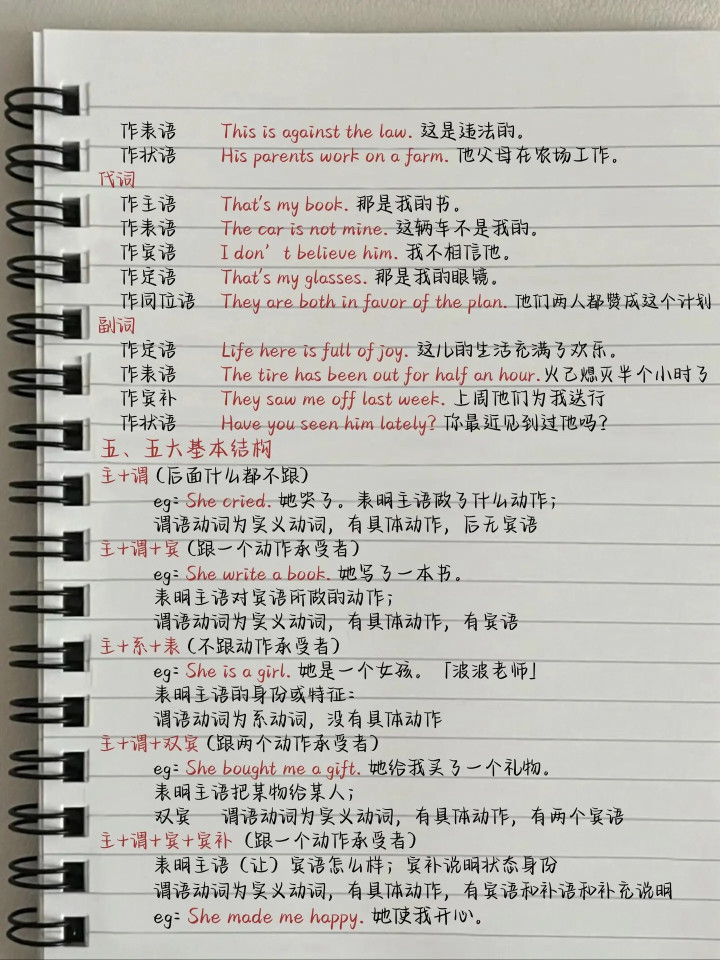 作表语 This is against the law. 这是违法的。
作状语 His parents work on a farm. 他父母在农场工作。
代词
作主语 That's my book. 那是我的书。
作表语 The car is not mine. 这辆车不是我的。
作宾语 I don't believe him. 我不相信他。
作定语 That's my glasses. 那是我的眼镜。
作同位语 They are both in favor of the plan. 他们两人都赞成这个计划
副词
作定语 Life here is full of joy. 这儿的生活充满了欢乐。
作表语 The tire has been out for half an hour. 火已熄灭半个小时了
作宾补 They saw me off last week. 上周他们为我送行
作状语 Have you seen him lately? 你最近见到过他吗?
五、五大基本结构
主+谓(后面什么都不跟)
eg: She cried. 她哭了。表明主语做了什么动作;
谓语动词为实义动词, 有具体动作, 后无宾语
主+谓+宾(跟一个动作承受者)
eg: She write a book. 她写了一本书。
表明主语对宾语所做的动作;
谓语动词为实义动词, 有具体动作, 有宾语
主+系+表(不跟动作承受者)
eg: She is a girl. 她是一个女孩。「波波老师」
表明主语的身份或特征:
谓语动词为系动词, 没有具体动作
主+谓+双宾(跟两个动作承受者)
eg: She bought me a gift. 她给我买了一个礼物。
表明主语把某物给某人;
双宾 谓语动词为实义动词, 有具体动作, 有两个宾语
主+谓+宾+宾补 (跟一个动作承受者)
表明主语(让)宾语怎么样; 宾补说明状态身份
谓语动词为实义动词, 有具体动作, 有宾语和补语和补充说明
eg: She made me happy. 她使我开心。